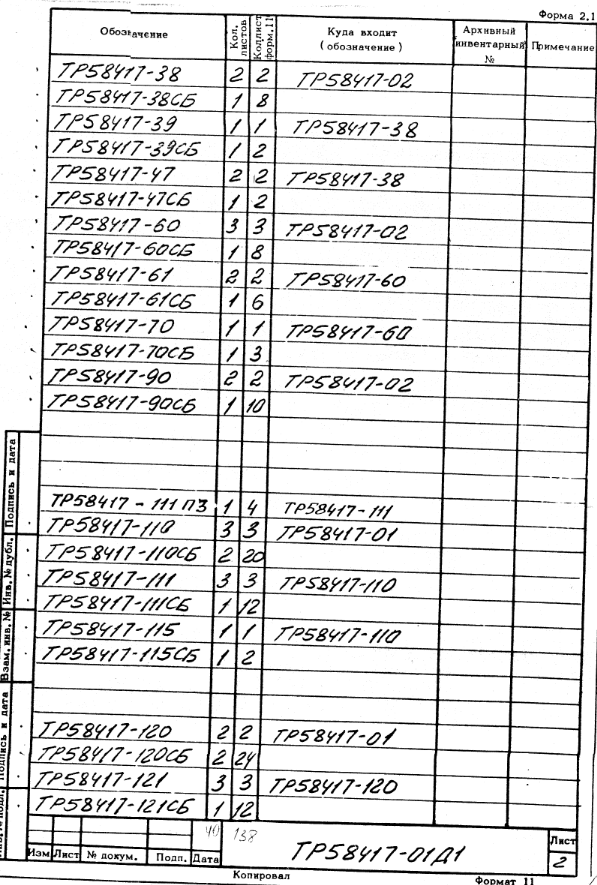 Форма 2.1
Обозначение Кол. листов Кол.лист форм.11 Куда входит (обозначение) Архивный инвентарный № Примечание
ТР58417-38 2 2 ТР58417-02
ТР58417-38СБ 1 8
ТР58417-39 1 1 ТР58417-38
ТР58417-39СБ 1 2
ТР58417-47 2 2 ТР58417-38
ТР58417-47СБ 1 2
ТР58417-60 3 3 ТР58417-02
ТР58417-60СБ 1 8
ТР58417-61 2 2 ТР58417-60
ТР58417-61СБ 1 6
ТР58417-70 1 1 ТР58417-60
ТР58417-70СБ 1 3
ТР58417-90 2 2 ТР58417-02
ТР58417-90СБ 1 10
ТР58417-111ПЗ 1 4 ТР58417-111
ТР58417-110 3 3 ТР58417-01
ТР58417-110СБ 2 20
ТР58417-111 3 3 ТР58417-110
ТР58417-111СБ 1 12
ТР58417-115 1 1 ТР58417-110
ТР58417-115СБ 1 2
ТР58417-120 2 2 ТР58417-01
ТР58417-120СБ 2 24
ТР58417-121 3 3 ТР58417-120
ТР58417-121СБ 1 12
40 138
Изм Лист № докум. Подп. Дата
ТР58417-01Д1
Лист
2
Копировал Формат 11
Подпись и дата
Инв. № дубл.
Взам. инв. №
Подпись и дата